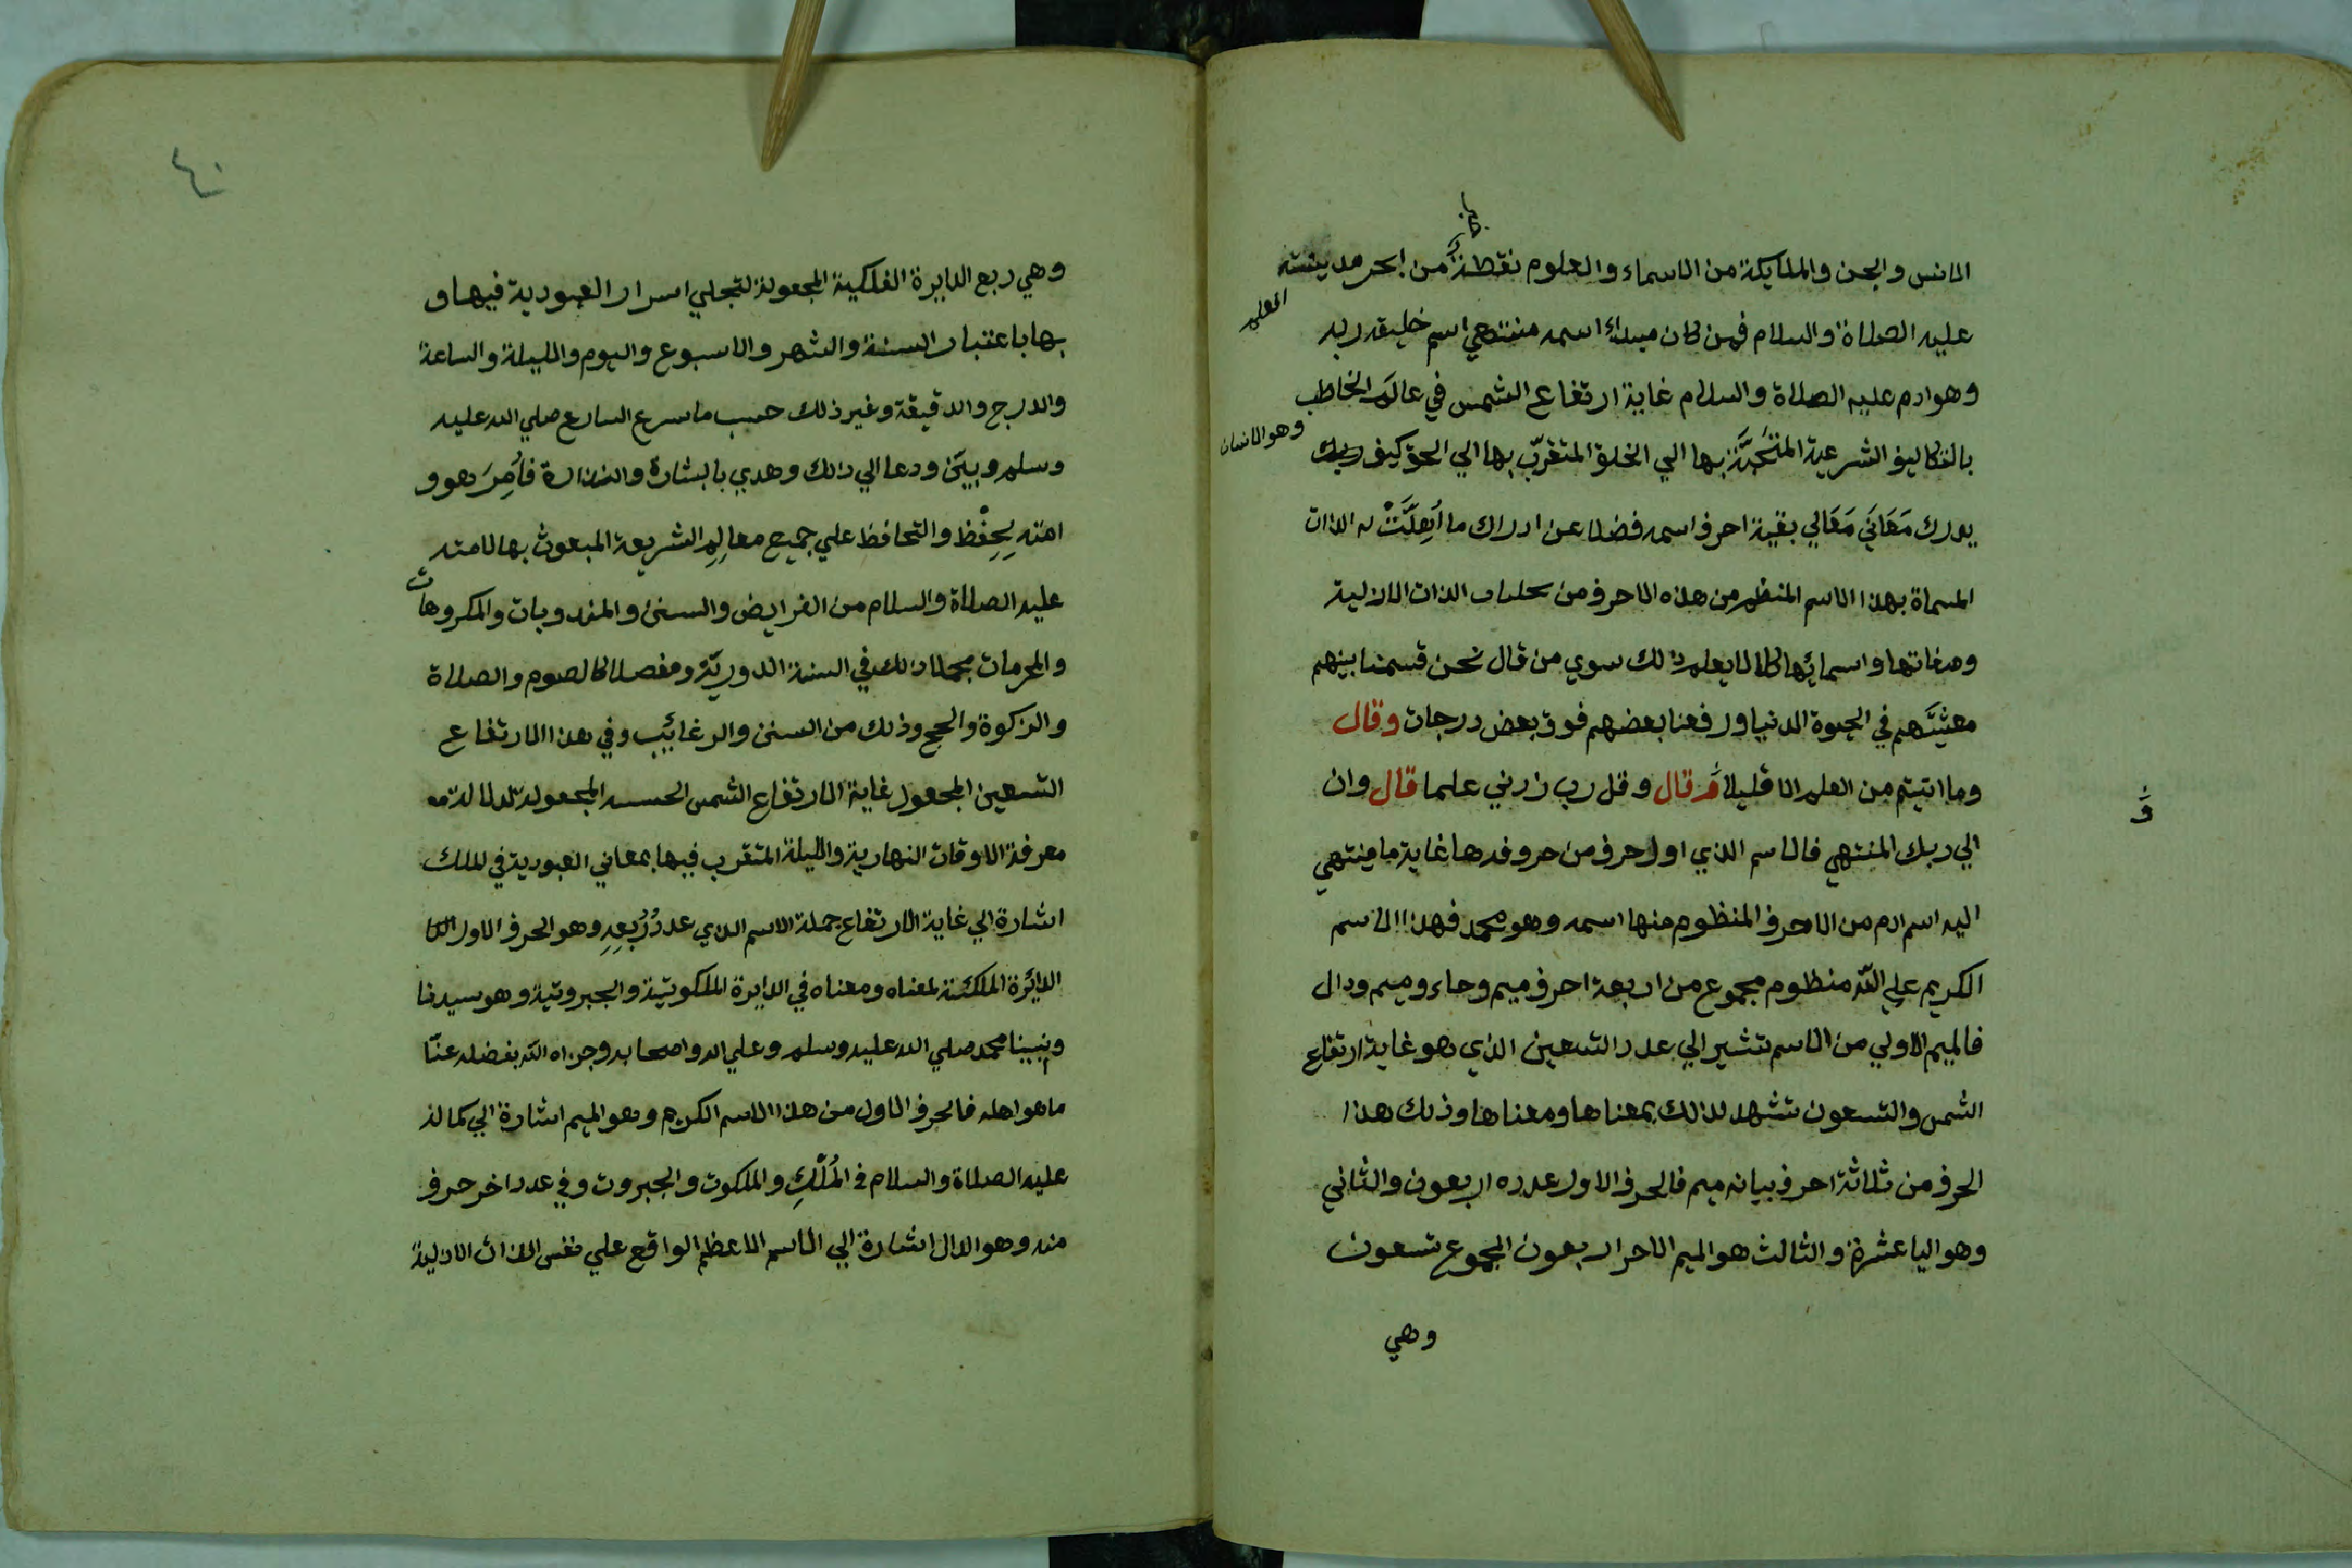 الانس والجن والملايكة من الاسماء والعلوم نقطةً من ابحر مدينته
العلم
عليه الصلاة والسلام فمن كان مبداء اسمه منتهي اسم خليقه ربه
وهو ادم عليه الصلاة والسلام غاية ارتفاع الشمس في عالم المخاطب
وهو الانسان
بالتكاليف الشرعية بها الي الخلق المتقرّب بها الي الحق كيف
يدرك مَعَانيَ مَعَالي بقية احرف اسمه فضلا عن ادراك ما له الذات
المسماة بهذا الاسم المنظم من هذه الاحرف من الذات الازلية
وصفاتها واسمائها كلا لا يعلم ذلك سوي من قال نحن قسمنا بينهم
معيشتهم في الحيوة الدنيا ورفعنا بعضهم فوق بعض درجات وقال
وما اتيتم من العلم الا قليلا قال وقل رب زدني علما قال وان
الي ربك المنتهي فالاسم الذي اول حرف من حروفه ها غاية ما ينتهي
اليه اسم ادم من الاحرف المنظوم منها اسمه وهو محمد فهذا الاسم
الكريم علي الله منظوم مجموع من اربعة احرف ميم وحاء وميم ودال
فالميم الاولي من الاسم تشير الي عدد التسعين الذي هو غاية ارتفاع
الشمس والتسعون تشهد لذلك بمعناها ومعناها وذلك هذا
الحرف من ثلاثة احرف بيانه ميم فالحرف الاول عدده اربعون والثاني
وهو اليا عشرة والثالث هو الميم الاخر اربعون المجموع تسعون
وهي
٤٠
وهي ربع الدايرة الفلكية المجعولة لتجلي اسرار العبودية فيها و
بها باعتبار السنة والشهر والاسبوع واليوم والليلة والساعة
والدرج والدقيقة وغير ذلك حسب ما شرع الشارع صلي الله عليه
وسلم وبيّن ودعا الي ذلك وهدي بالبشارة والنذارة فأُمِرَ هو و
امته بِحِفْظ والتحافظ علي جميع معالِمِ الشريعة المبعوث بها لامته
عليه الصلاة والسلام من الفرايض والسنن والمندوبات والمكروهات
والمحرمات مجملا ذلك في السنة الدوريّة ومفصلا كالصوم والصلاة
والزكوة والحج وذلك من السنن والرغائب وفي هذا الارتفاع
التسعين المجعول غاية الارتفاع الشمس المجعولة
معرفة الاوقات النهارية والليلة المتقرب فيها بمعاني العبودية في الملك
اشارة الي غاية الارتفاع جملة الاسم الذي عدد رُبعِهِ وهو الحرف الاول
الدائرة لمعناه ومعناه في الدايرة الملكوتية والجبروتية وهو سيدنا
ونبينا محمد صلي الله عليه وسلم وعلي اله واصحابه وجزاه الله بفضله عنّا
ما هو اهله فالحرف الاول من هذا الاسم الكريم وهو الميم اشارة الي كماله
عليه الصلاة والسلام في المُلْكِ والملكوت والجبروت وفي عدد اخر حرف
منه وهو الدال اشارة الي الاسم الاعظم الواقع علي نفس الذات الازلية